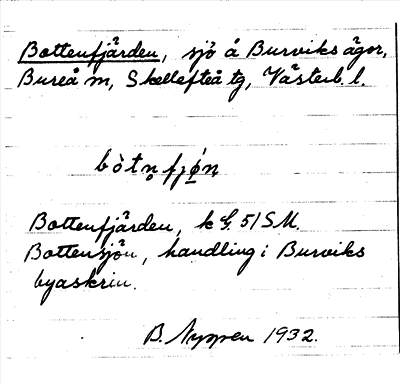 Bottenfjärden, sjö å Burviks ägor,
Bureå m, Skellefteå tg, Västerb. l.
bòtn̥ fjǿn̥
Bottenfjärden, k G. 51 SM.
Bottensjön, handling i Burviks
byaskrin.
B. Nyppen 1932.